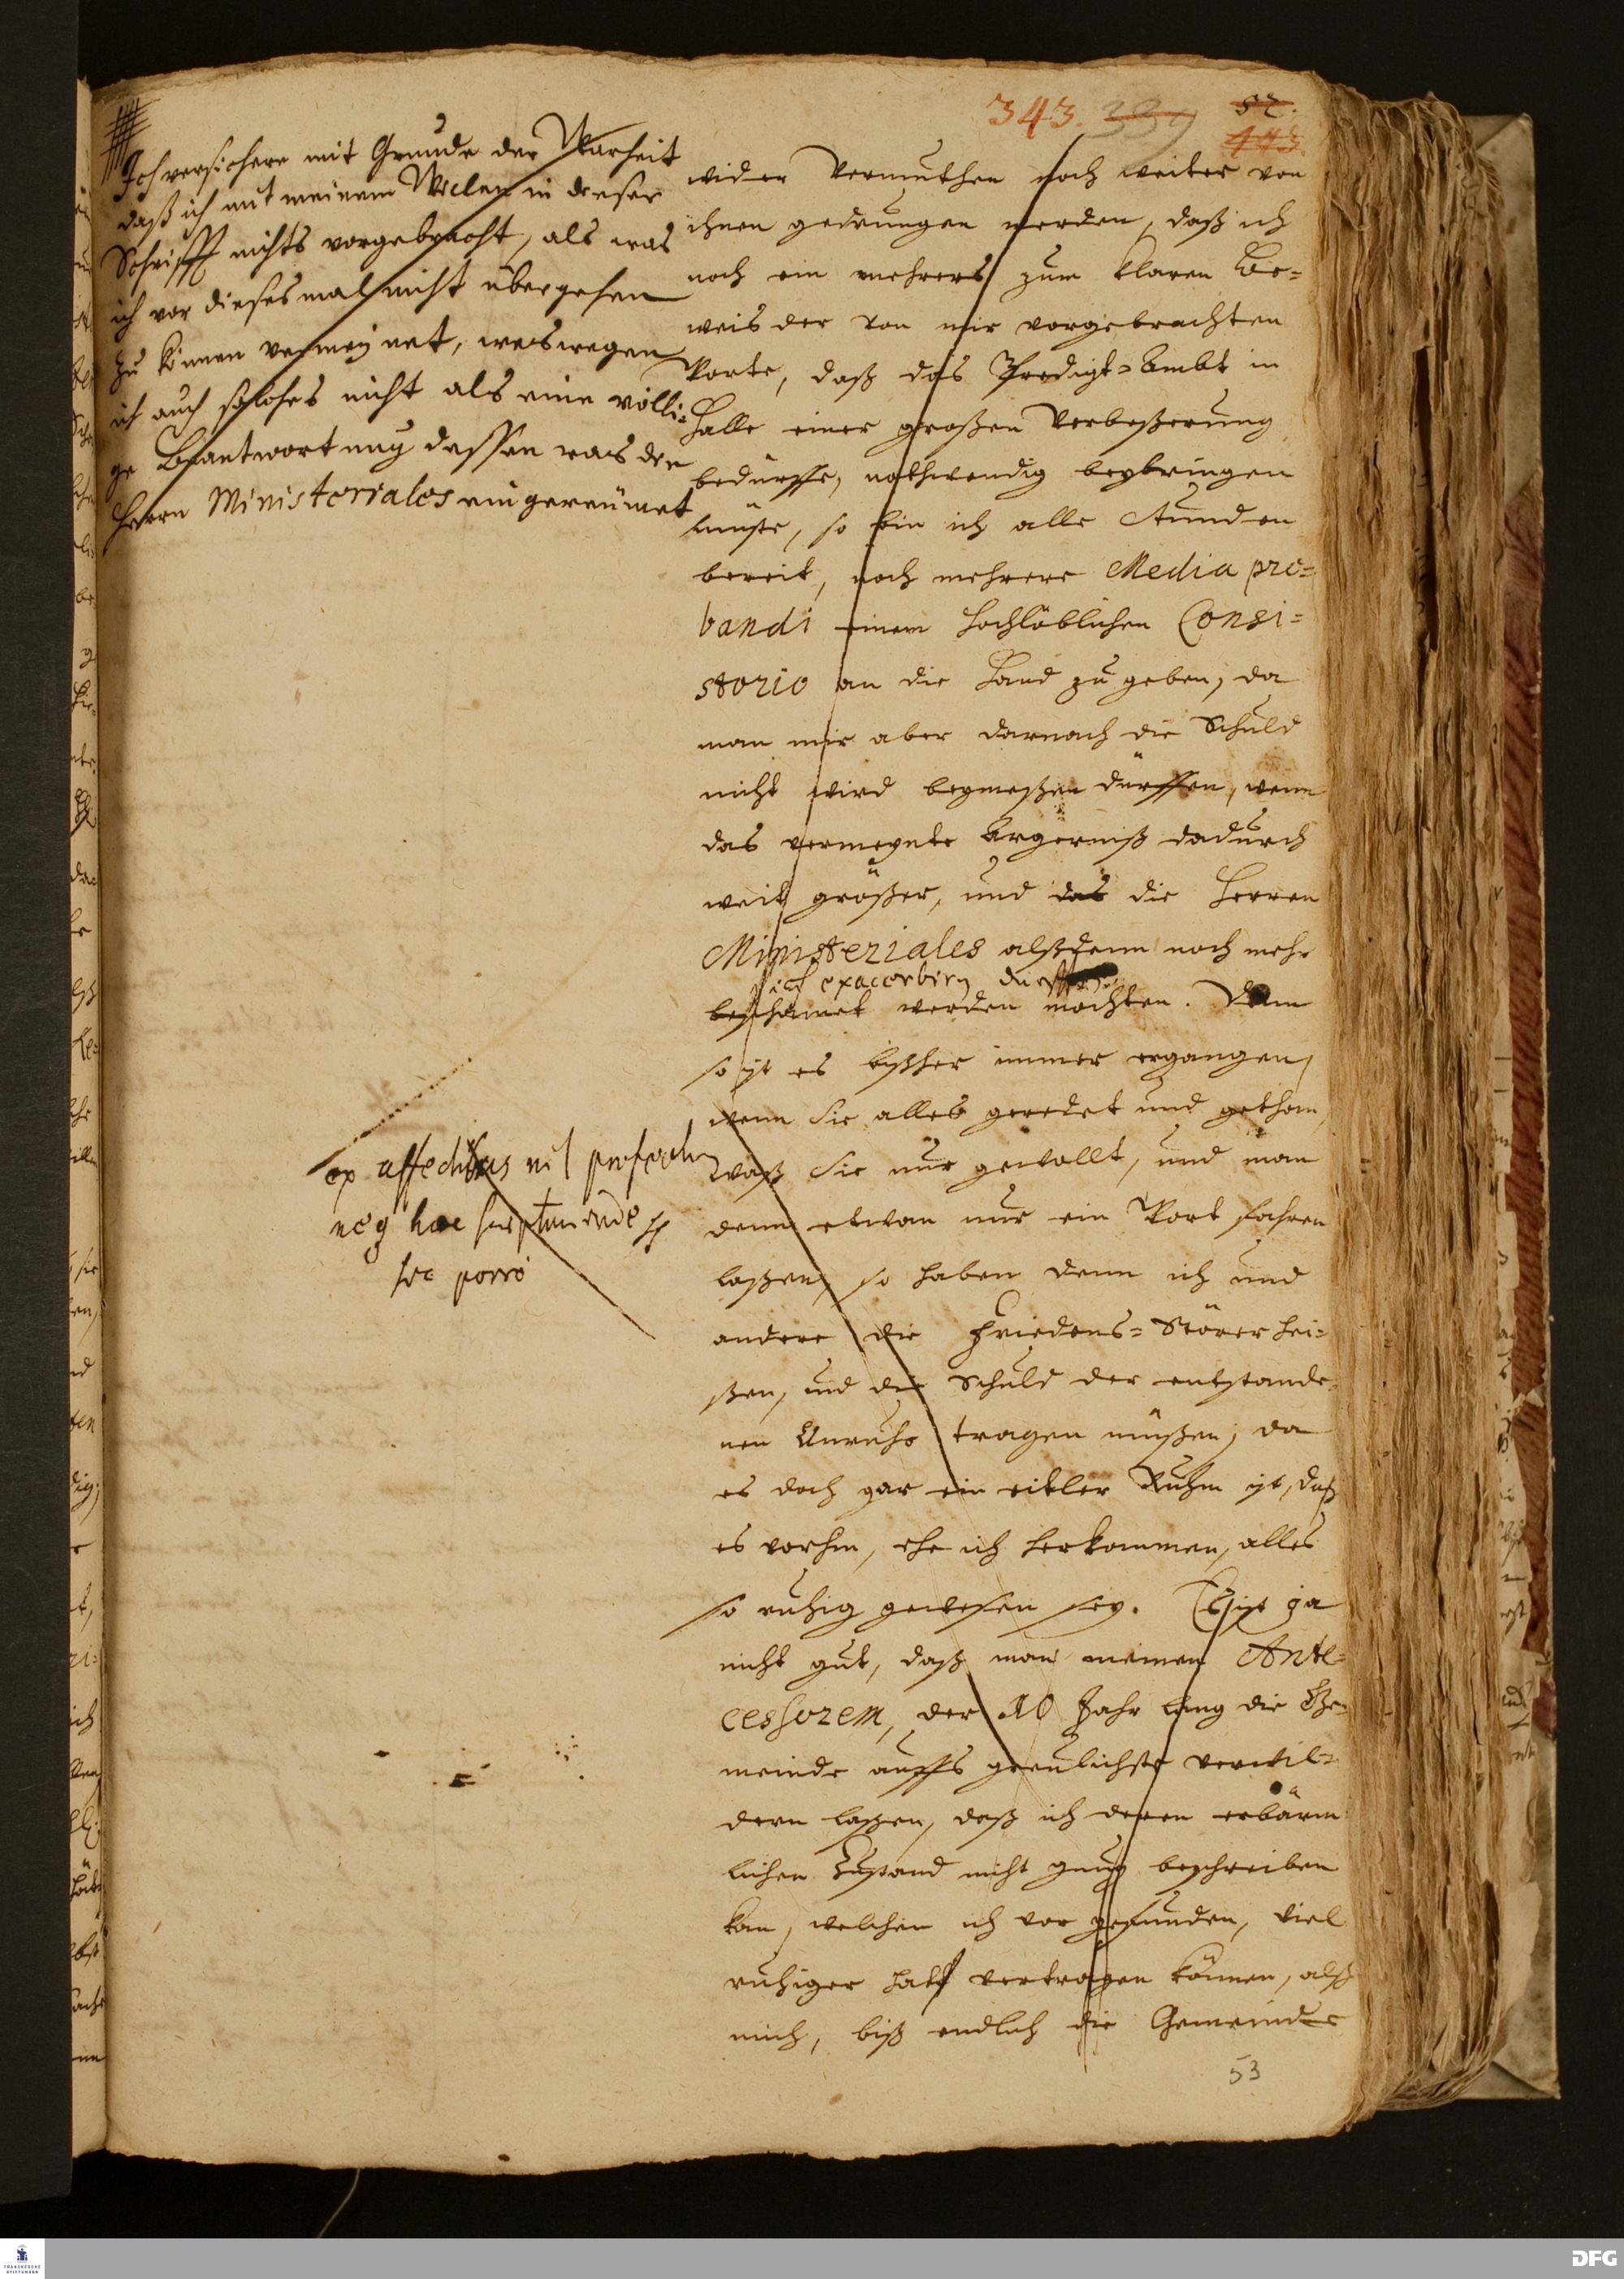 343. 339 52.
443.
Ich versichere mit Grunde der Warheit
daß ich mit meinem Willen in dieser
Schrifft nichts vorgebracht, als was
ich vor dieses mal nicht übergehen
zu können vermeynet, weswegen
ich auch solches nicht als eine völli-
ge Beantwortung dessen was der
Herrn Ministeriales eingereümet
wider Vermuthen noch weiter von
ihnen gedrungen werden, daß ich
noch ein mehrers zum klaren Be=
weis der von mir vorgebrachten
Worte, daß das Predigt=Ambt in
Halle einer großen Verbeßerung
bedürffe, nothwendig beybringen
müste, so bin ich alle Stunden
bereit, noch mehrere Media pro=
bandi einem Hochlöblichen Consi=
storio an die Hand zu geben, da
man mir aber darnach die Schuld
nicht wird beymeßen dürffen, wenn
das vermeynte Ärgerniß dadurch
weit größer, und das die Herren
Ministeriales alßdenn noch mehr
sich exacerbiren
beschämet werden möchten. Denn
so ist es bißher immer ergangen,
wenn Sie alles geredet und gethan,
waß Sie nur gewollt, und man
denn etwan nur ein Wort fahren
laßen, so haben denn ich und
andere die Friedens=Störer hei=
ßen, und die Schuld der entstande=
nen Unruhe tragen müßen, da
es doch gar ein eitler Ruhm ist, daß
es vorhin, ehe ich herkommen, alles
so ruhig gewesen sey. Es ist ja
nicht gut, daß man meinen Ante=
cessorem, der 10 Jahr lang die Ge=
meinde auffs greulichste verwil=
dern laßen, daß ich deren erbärm
lichen Zustand nicht gnug beschreiben
kan, welchen ich vor gefunden, viel
ruhiger hatt vertragen können, alß
mich, biß endlich die Gemeinde
ex affectibus nil
neq hae
hoc porro
53
FRANCKESCHE
STIFTUNGEN
DFG